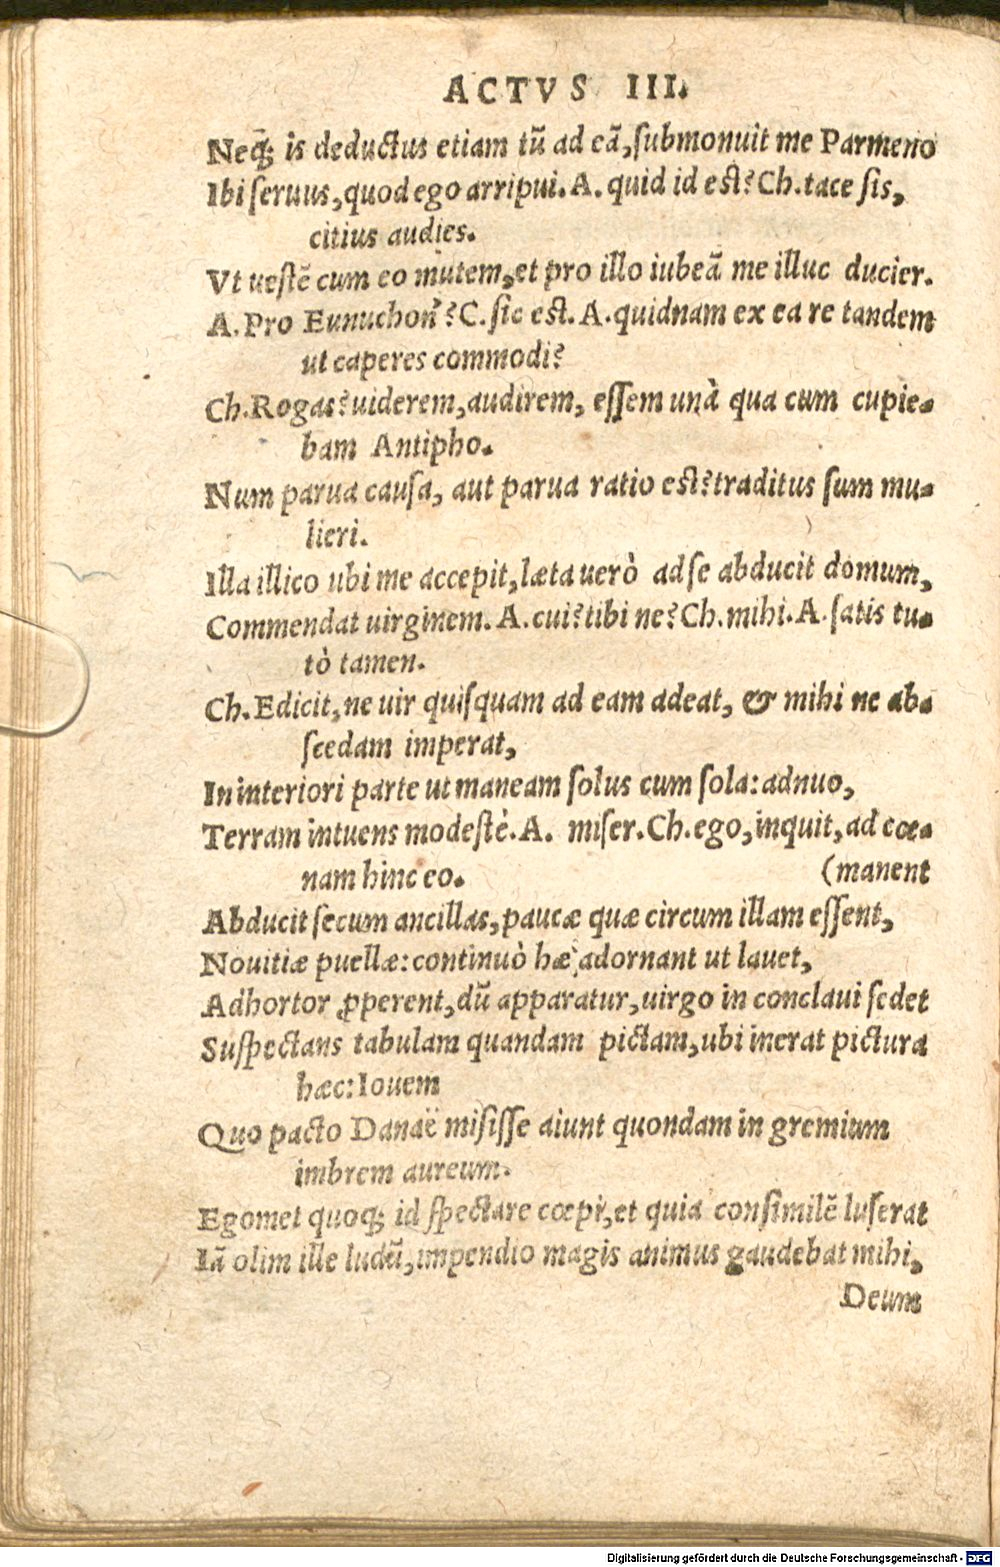 ACTVS III.
Neq; is deductus etiam tũ ad eã, submonuit me Parmeno
Ibi seruus, quod ego arripui. A. quid id est? Ch. tace sis,
citius audies.
Vt uestẽ cum eo mutem, et pro illo iubeã me illuc ducier.
A. Pro Eunuchon'? C. sic est. A. quidnam ex ea re tandem
ut caperes commodi?
Ch. Rogas? uiderem, audirem, essem unà qua cum cupie-
bam Antipho.
Num parua causa, aut parua ratio est? traditus sum mu-
lieri.
Illa illico ubi me accepit, læta uerò ad se abducit domum,
Commendat uirginem. A. cui? tibi ne? Ch. mihi. A. satis tu-
tò tamen.
Ch. Edicit, ne uir quisquam ad eam adeat, & mihi ne ab-
scedam imperat,
In interiori parte ut maneam solus cum sola: adnuo,
Terram intuens modestè. A. miser. Ch. ego, inquit, ad cœ-
nam hinc eo. (manent
Abducit secum ancillas, paucæ quæ circum illam essent,
Nouitiæ puellæ: continuò hæ adornant ut lauet,
Adhortor ꝓperent, dũ apparatur, uirgo in conclaui sedet
Suspectans tabulam quandam pictam, ubi inerat pictura
hæc: Iouem
Quo pacto Danaë misisse aiunt quondam in gremium
imbrem aureum.
Egomet quoq; id spectare cœpi, et quia consimilẽ luserat
Iã olim ille ludũ, impendio magis animus gaudebat mihi,
Deum
Digitalisierung gefördert durch die Deutsche Forschungsgemeinschaft - DFG